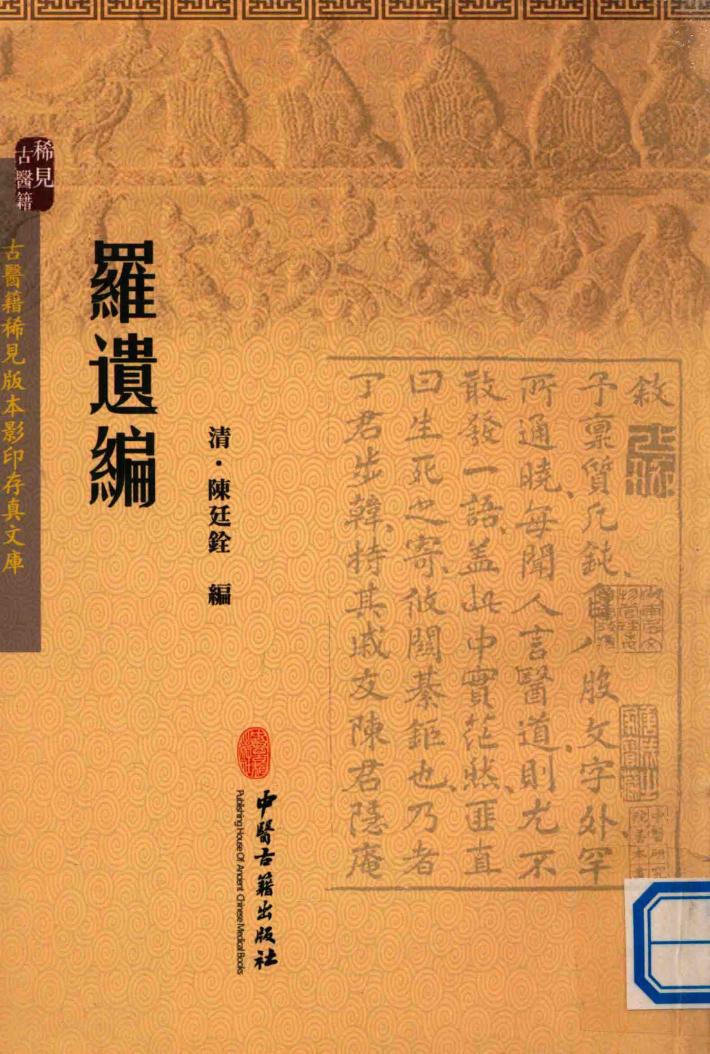 稀見
古醫籍
古醫籍稀見版本影印存真文庫
羅遺編
清·陳廷銓 編
敘
予稟質凡鈍
八股文字外罕
所通曉每聞人言醫道則尤不
敢發一語蓋此中實茫然匪直
曰生死之寄攸關綦鉅也乃者
丁君步韓持其戚友陳君隱庵
中醫古籍出版社
Publishing House Of Ancient Chinese Medical Books